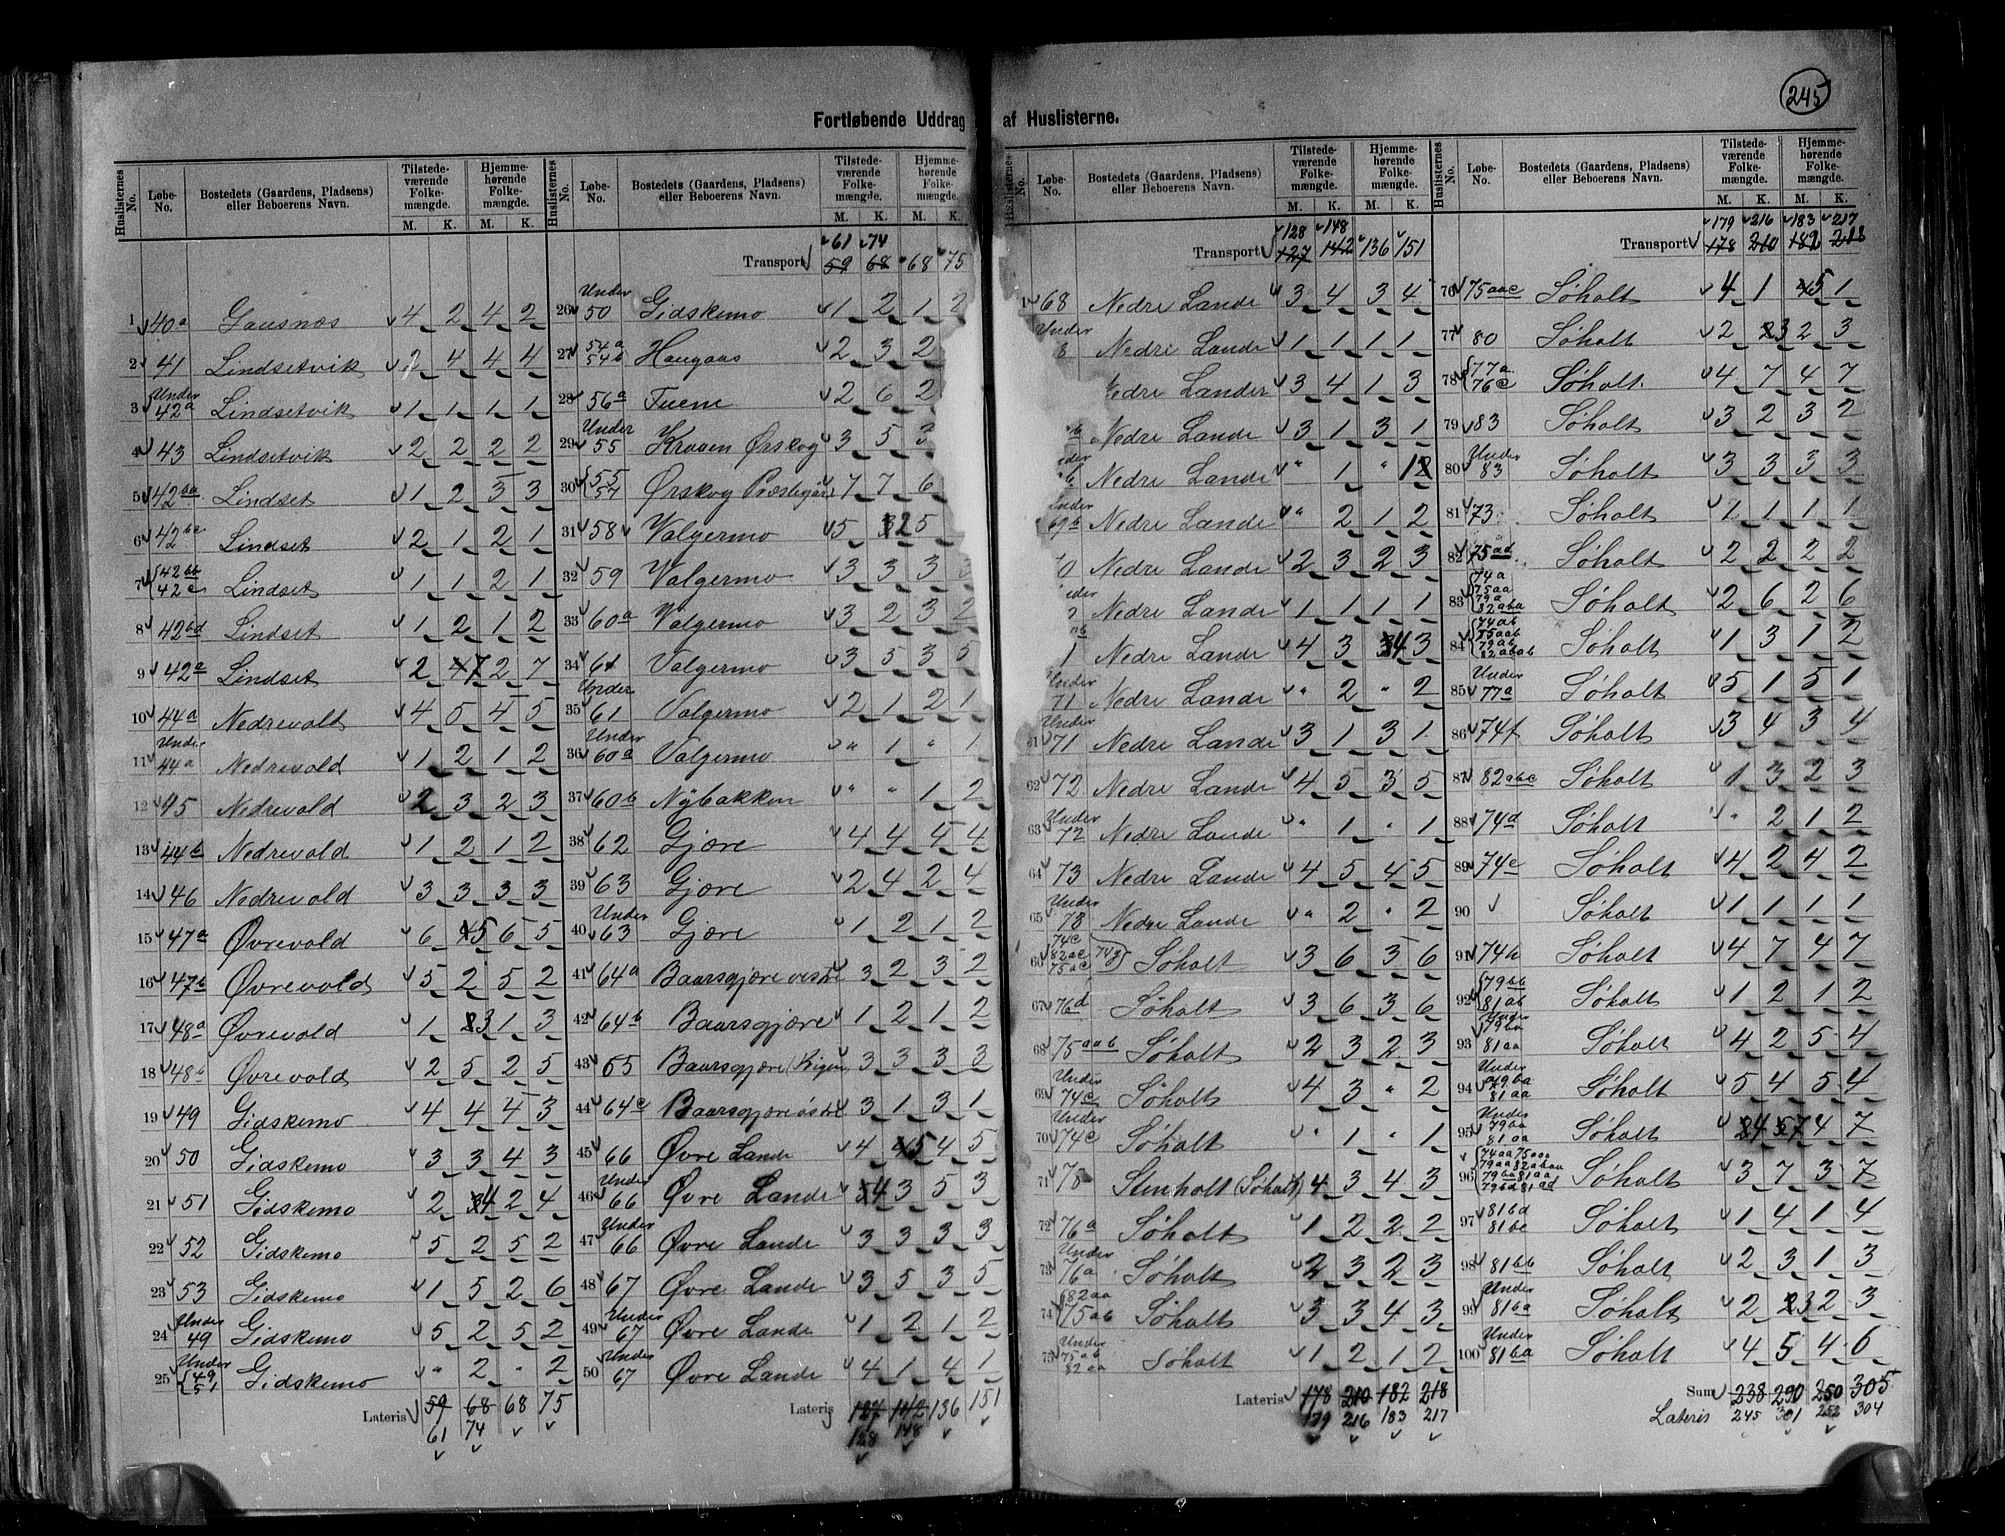 245
Fortløbende Uddrag af Huslisterne.
Huslisternes No. Løbe-No. Bostedets (Gaardens, Pladsens) eller Beboerens Navn. Tilstedeværende Folkemængde. Hjemmehørende Folkemængde.
M. K. M. K.
1 40a Gausnæs 4 2 4 2
2 41 Lindsetvik 2 4 4 4
3 Under 42a Lindsetvik 1 1 1 1
4 43 Lindsetvik 2 2 2 2
5 42ba Lindset 1 2 3 3
6 42bc Lindset 2 1 2 1
7 42bb 42c Lindset 1 1 2 1
8 42bd Lindset 1 2 1 2
9 42a Lindset 2 7 2 7
10 44a Nedrevolt 4 5 4 5
11 Under 44a Nedrevold 1 2 1 2
12 45 Nedrevold 2 3 2 3
13 44b Nedrevold 1 2 1 2
14 46 Nedrevold 3 3 3 3
15 47a Øvrevold 6 5 6 5
16 47b Øvrevold 5 2 5 2
17 48a Øvrevold 1 3 1 3
18 48b Øvrevold 2 5 2 5
19 49 Gidskemo 4 4 4 3
20 50 Gidskemo 3 3 4 3
21 51 Gidskemo 2 4 2 4
22 52 Gidskemo 5 2 5 2
23 53 Gidskemo 1 5 2 6
24 Under 49 Gidskemo 5 2 5 2
25 Under 49 51 Gidskemo " 2 " 2
Lateris 59 68 68 75
61 74
Huslisternes No. Løbe-No. Bostedets (Gaardens, Pladsens) eller Beboerens Navn. Tilstedeværende Folkemængde. Hjemmehørende Folkemængde.
M. K. M. K.
61 74
Transport 59 68 68 75
26 Under 50 Gidskemo 1 2 1 2
27 54a 54b Haugaas 2 3 2
28 56a Tuene 2 6 2
29 Under 55 Kraaen Ørskog 3 5 3
30 55 57 Ørskog Præstegård 7 7 6
31 58 Valgermo 5 2 5
32 59 Valgermo 3 3 3 3
33 60a Valgermo 3 2 3 2
34 61 Valgermo 3 5 3 5
35 Under 61 Valgermo 2 1 2 1
36 Under 60a Valgermo " 1 " 1
37 60b Nybakken " " 1 2
38 62 Gjære 4 4 4 4
39 63 Gjære 2 4 2 4
40 Under 63 Gjære 1 2 1 2
41 64a Baarsgjære vestre 3 2 3 2
42 64b Baarsgjære 1 2 1 2
43 65 Baarsgjære 3 3 3 3
44 64c Baarsgjære østre 3 1 3 1
45 66 Øvre Lande 4 5 4 5
46 Under 66 Øvre Lande 4 3 5 3
47 Under 66 Øvre Lande 3 3 3 3
48 67 Øvre Lande 3 5 3 5
49 Under 67 Øvre Lande 1 2 1 2
50 Under 67 Øvre Lande 4 1 4 1
Lateris 127 142 136 151
128 148
Huslisternes No. Løbe-No. Bostedets (Gaardens, Pladsens) eller Beboerens Navn. Tilstedeværende Folkemængde. Hjemmehørende Folkemængde.
M. K. M. K.
128 148
Transport 127 142 136 151
68 Nedre Lande 3 4 3 4
Under 8 Nedre Lande 1 1 1 1
Nedre Lander 3 4 1 3
Nedre Lande 3 1 3 1
Nedre Lande " 1 "
69b Nedre Lande " 2 1 2
Nedre Lande 2 3 2 3
Nedre Lande 1 1 1 1
Nedre Lande 4 3 4 3
Under 71 Nedre Lande " 2 " 2
61 Under 71 Nedre Lande 3 1 3 1
62 72 Nedre Lande 4 5 3 5
63 Under 72 Nedre Lande " 1 " 1
64 73 Nedre Lande 4 5 4 5
65 Under 73 Nedre Lande " 2 " 2
66 74c 82ac 75ac 74g Søholt 3 6 3 6
67 76d Søholt 3 6 3 6
68 75aab Søholt 2 3 2 3
69 Under 74c Søholt 4 3 " 2
70 Under 74c Søholt " 1 " 1
71 78 Stenholt (Søholt) 4 3 4 3
72 76a Søholt 1 2 2 2
73 Under 76a Søholt 2 3 2 3
74 82aa 75ab Søholt 3 3 4 3
75 Under 75ab 82aa Søholt 1 2 1 2
Lateris 178 210 182 218
179 216 183 217
Huslisternes No. Løbe-No. Bostedets (Gaardens, Pladsens) eller Beboerens Navn. Tilstedeværende Folkemængde. Hjemmehørende Folkemængde.
M. K. M. K.
179 216 183 217
Transport 178 210 182 218
76 75aac Søholt 4 1 5 1
77 80 Søholt 2 3 2 3
78 77a 76c Søholt 4 7 4 7
79 83 Søholt 3 2 3 2
80 Under 83 Søholt 3 3 3 3
81 73 Søholt 1 1 1 1
82 75ad Søholt 2 2 2 2
83 74a 75aa 79a 82aba Søholt 2 6 2 6
84 74ab 75aab 79ab 82abab Søholt 1 3 1 2
85 Under 77a Søholt 5 1 5 1
86 74f Søholt 3 4 3 4
87 82abc Søholt 1 3 2 3
88 74d Søholt " 2 1 2
89 74e Søholt 4 2 4 2
90 Søholt 1 1 1 1
91 74h Søholt 4 7 4 7
92 79bb 81ab Søholt 1 2 1 2
93 Under 79ba 81aa Søholt 4 2 5 4
94 Under 79ba 81aa Søholt 5 4 5 4
95 Under 79ba 81aa Søholt 4 7 4 7
96 74aa 75aaa 79aa 82abaa 79ba 81aa 79bd 81ad Søholt 3 7 3 7
97 81bd 81bc Søholt 1 4 1 4
98 81bb Søholt 2 3 1 3
99 Under 81ba Søholt 2 3 2 3
100 Under 81ba Søholt 4 5 4 6
Sum 238 290 250 305
Lateris 245 301 252 304